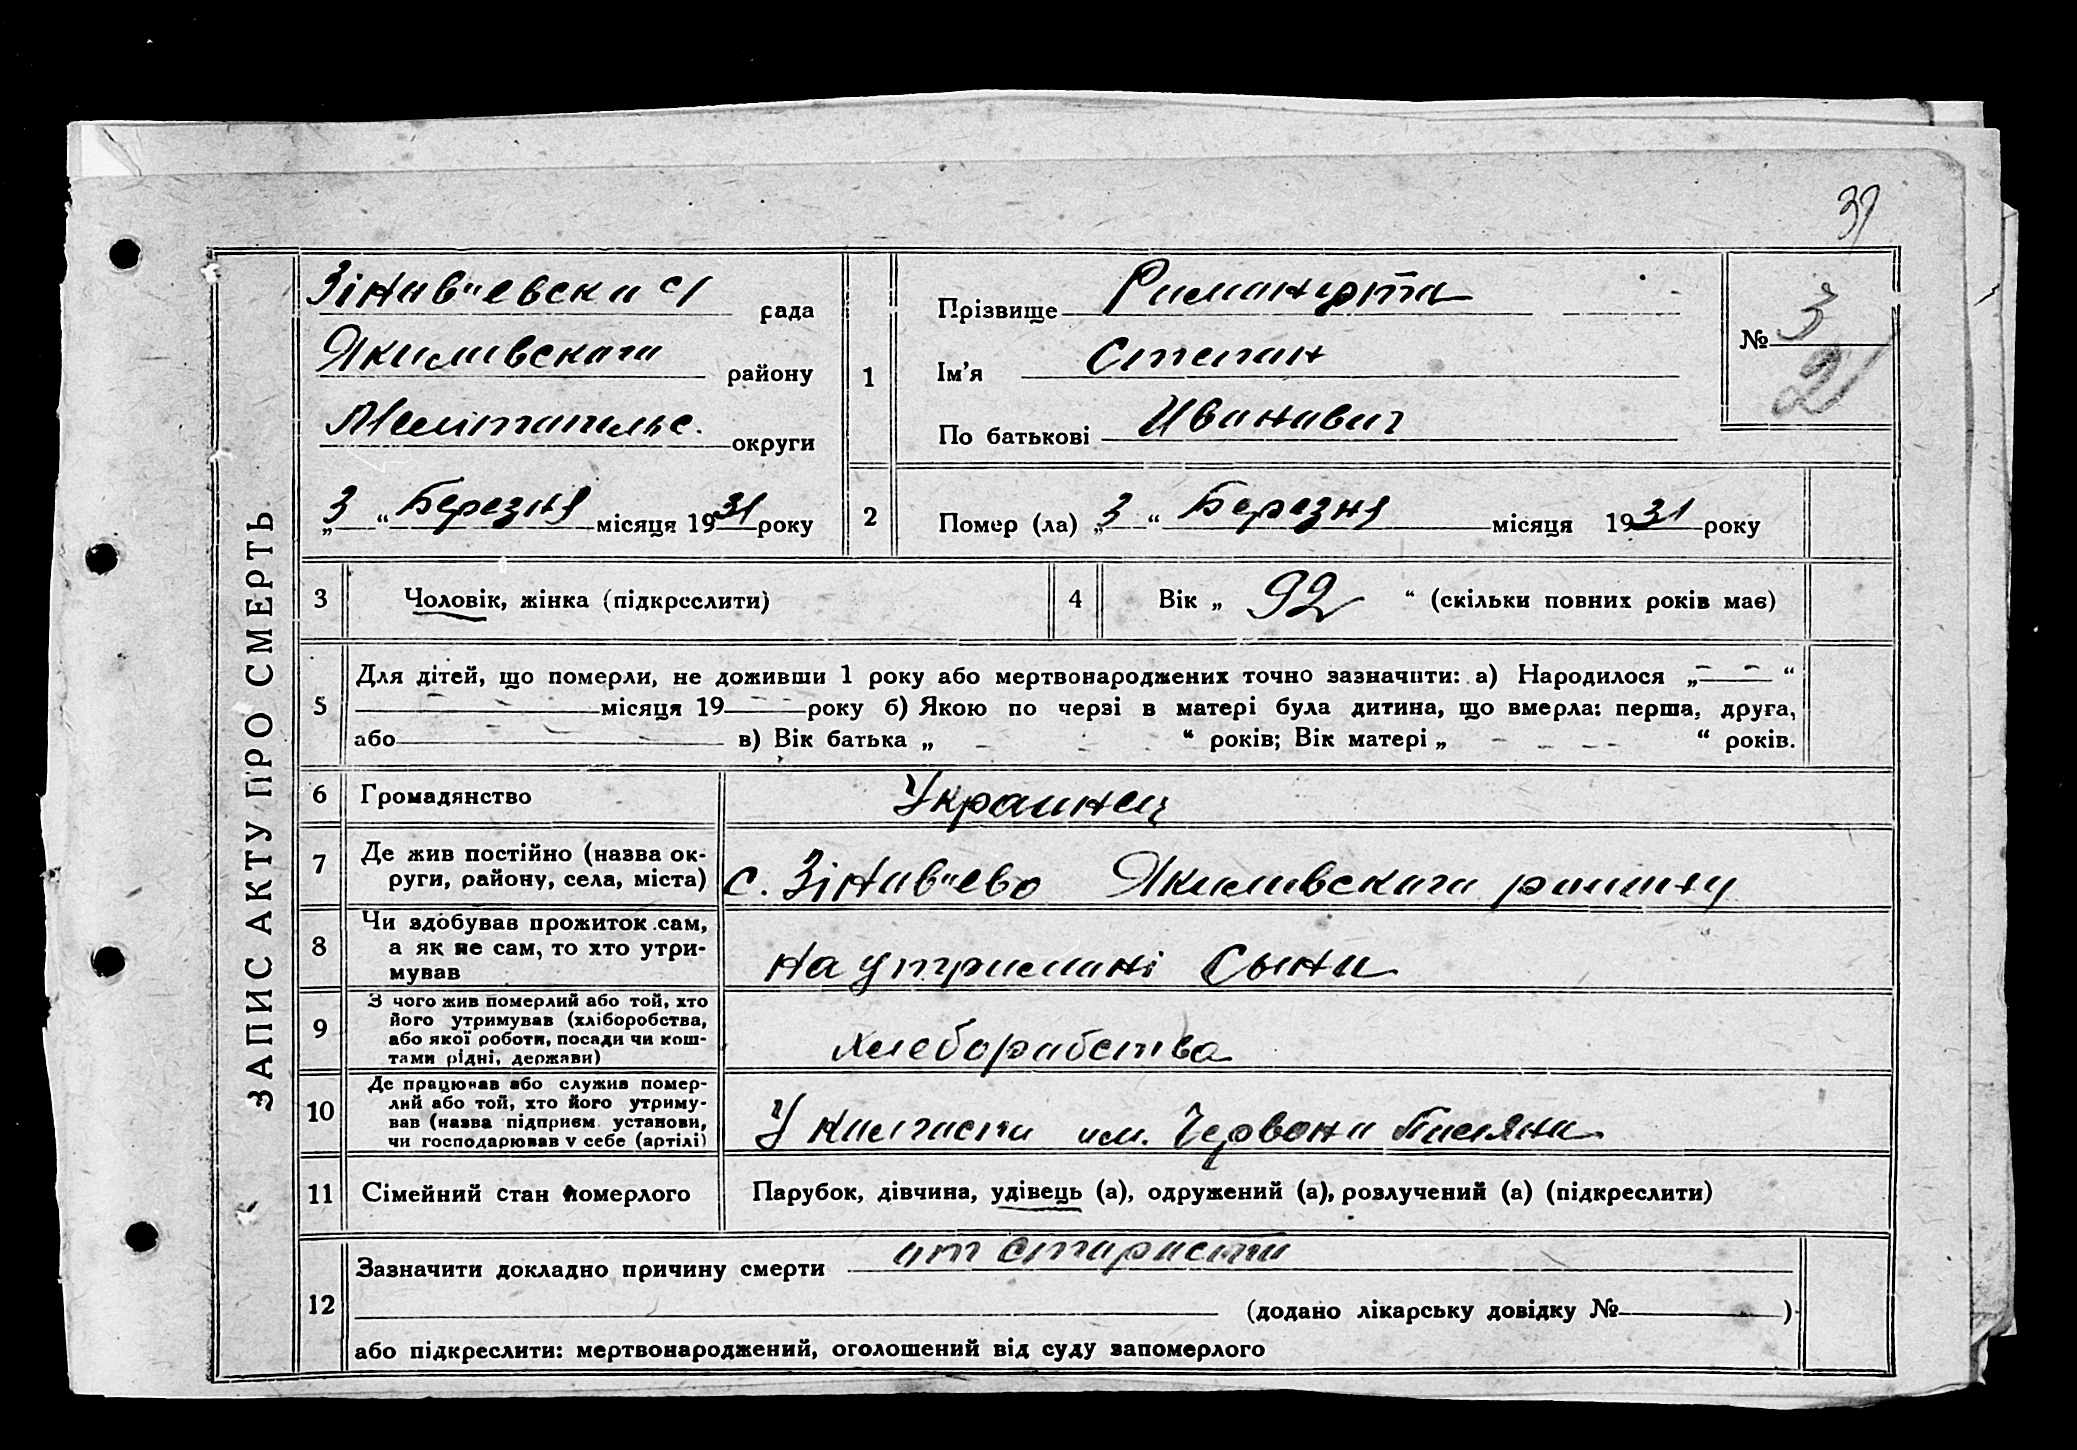 39
ЗАПИС АКТУ ПРО СМЕРТЬ
Зінавиевска с/ рада
Якимивскаго району
Мелітапильс. округи
„3“ Березня місяця 1931 року
1
Прізвище
Ім'я Степан
По батькові Иванавич
№ 3
21
2
Помер (ла) „3“ Березня місяця 1931 року
3
Чоловік, жінка (підкреслити)
4
Вік „92“ (скільки повних років має)
5
Для дітей, що померли, не доживши 1 року або мертвонароджених точно зазначити: а) Народилося „— —“
місяця 19 року б) Якою по черзі в матері була дитина, що вмерла: перша, друга,
або в) Вік батька „ - - - “ років; Вік матері „ - - - - “ років.
6
Громадянство
Украинец
7
Де жив постійно (назва ок-
руги, району, села, міста)
с. Зінавиево Якимивскаго раиину
8
Чи здобував прожиток сам,
а як не сам, то хто утри-
мував
на утримані Сына
9
З чого жив померлий або той, хто
його утримував (хліборобства,
або якої роботи, посади чи кош-
тами рідні, держави)
хлеборабства
10
Де працював або служив помер-
лий або той, хто його утриму-
вав (назва підприєм. установи,
чи господарював у себе (артілі)
У калгаспи им. Червона Паляна
11
Сімейний стан померлого
Парубок, дівчина, удівець (а), одружений (а), розлучений (а) (підкреслити)
12
Зазначити докладно причину смерти ат старасти
(додано лікарську довідку № )
або підкреслити: мертвонароджений, оголошений від суду запомерлого